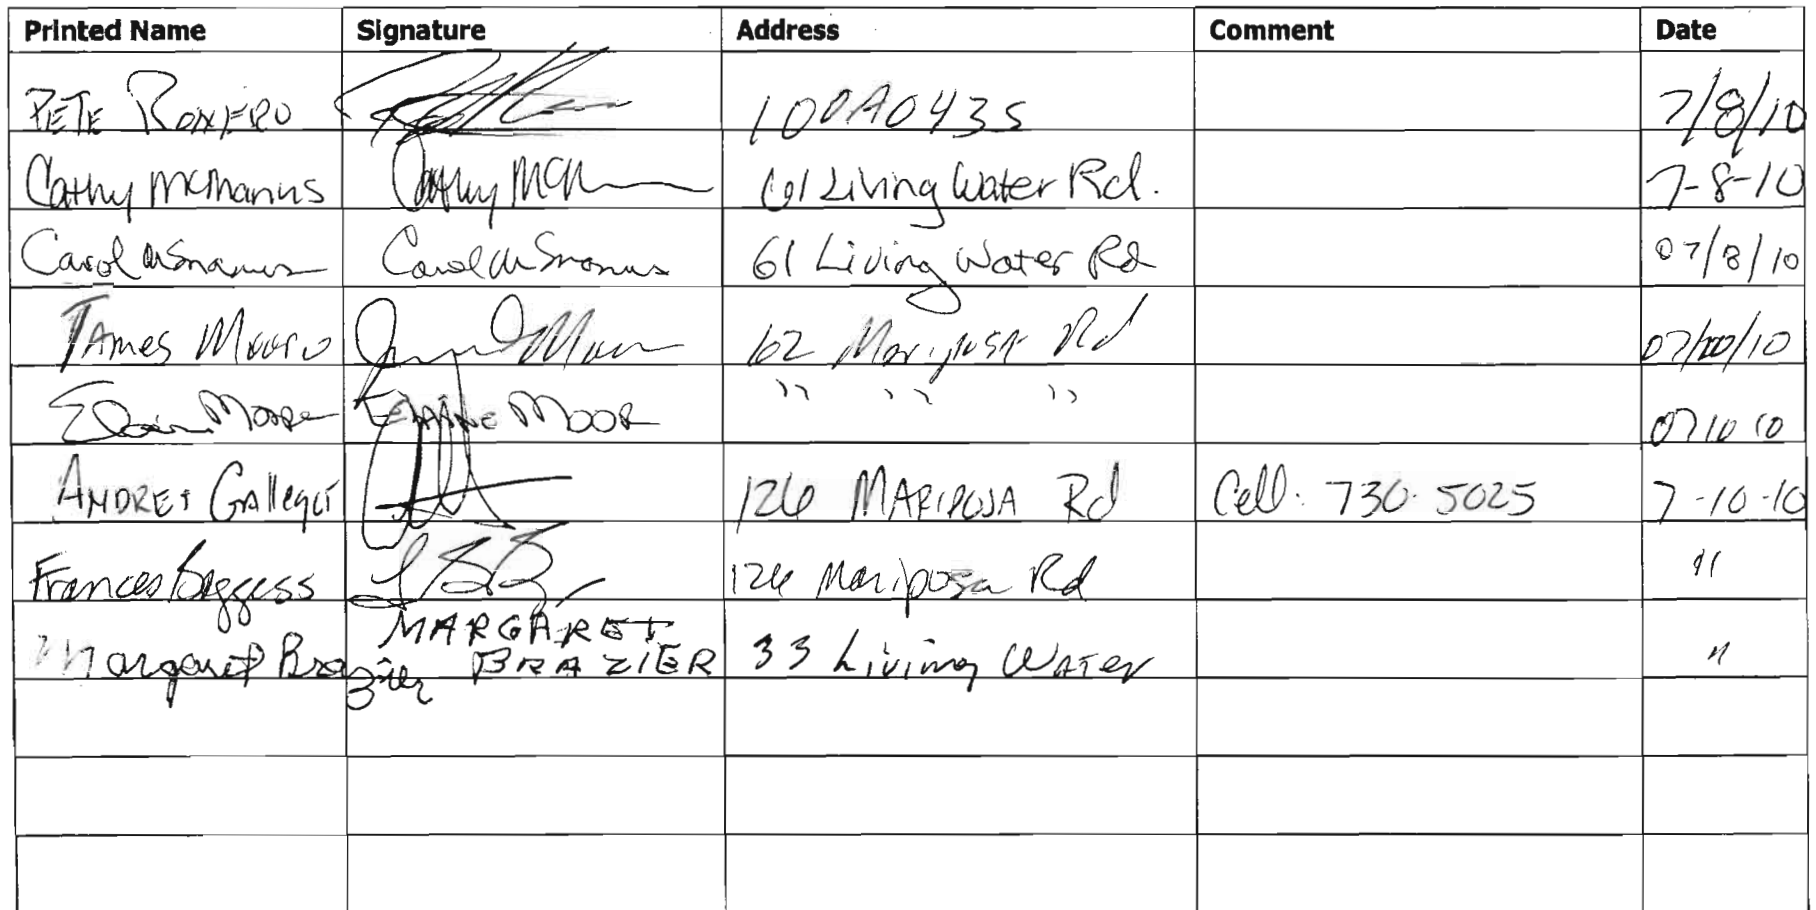 Printed Name Signature Address Comment Date
PETE ROMERO 100A0435 7/8/10
Cathy McManus Cathy McM 61 Living Water Rd. 7-8-10
Carol McManus Carol McManus 61 Living Water Rd 07/8/10
James Moore 62 Mariposa Rd 07/10/10
Elaine Moore ELAINE MOOR " " " 07 10 10
ANDRES Gallegos 126 MARIPOSA Rd Cell: 730-5025 7-10-10
Frances Boggess 126 Mariposa Rd "
Margaret Brazier MARGARET BRAZIER 33 Living WATER "